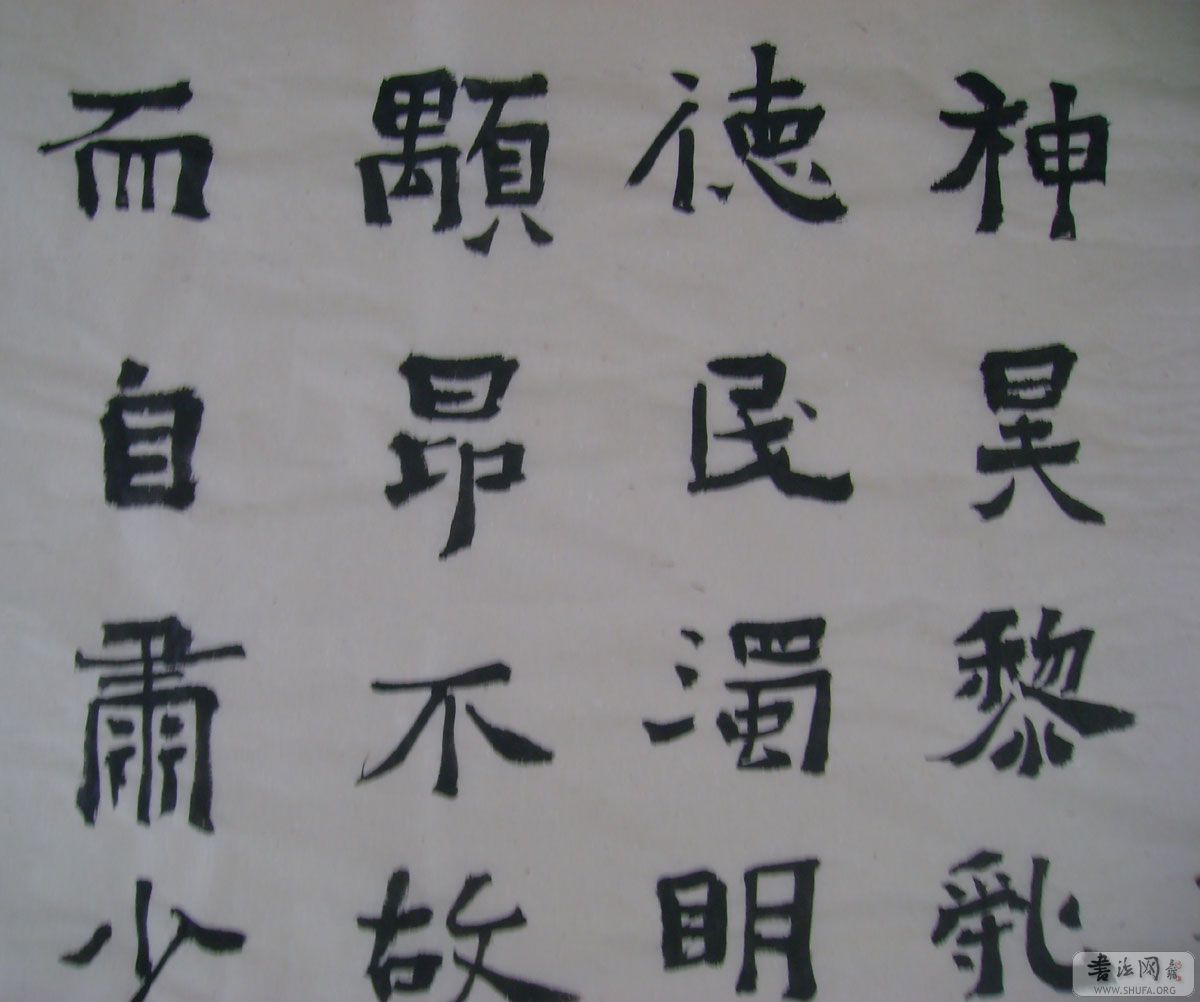 神昊黎亂
德民濁明
顒昂不故
而自肅少
書法网
WWW.SHUFA.ORG